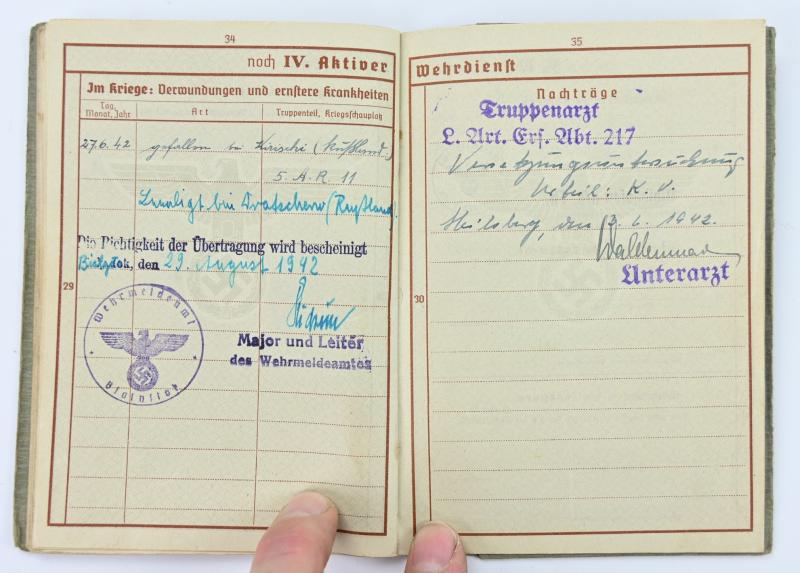 34
noch IV. Aktiver
Im Kriege: Verwundungen und ernstere Krankheiten
Tag, Monat, Jahr
Art
Truppenteil, Kriegsschauplatz
27.6.42 gefallen bei Kirischi (Rußland.)
5. A.R. 11
bei (Rußland).
Die Richtigkeit der Übertragung wird bescheinigt
den 29. August 1942
29
Wehrmeldeamt
Bialystok
Major und Leiter
des Wehrmeldeamtes
35
Wehrdienst
Nachträge
Truppenarzt
L. Art. Ers. Abt. 217
Versetzungsuntersuchung
Urteil: K. V.
Heilsberg, den 1942.
Unterarzt
30